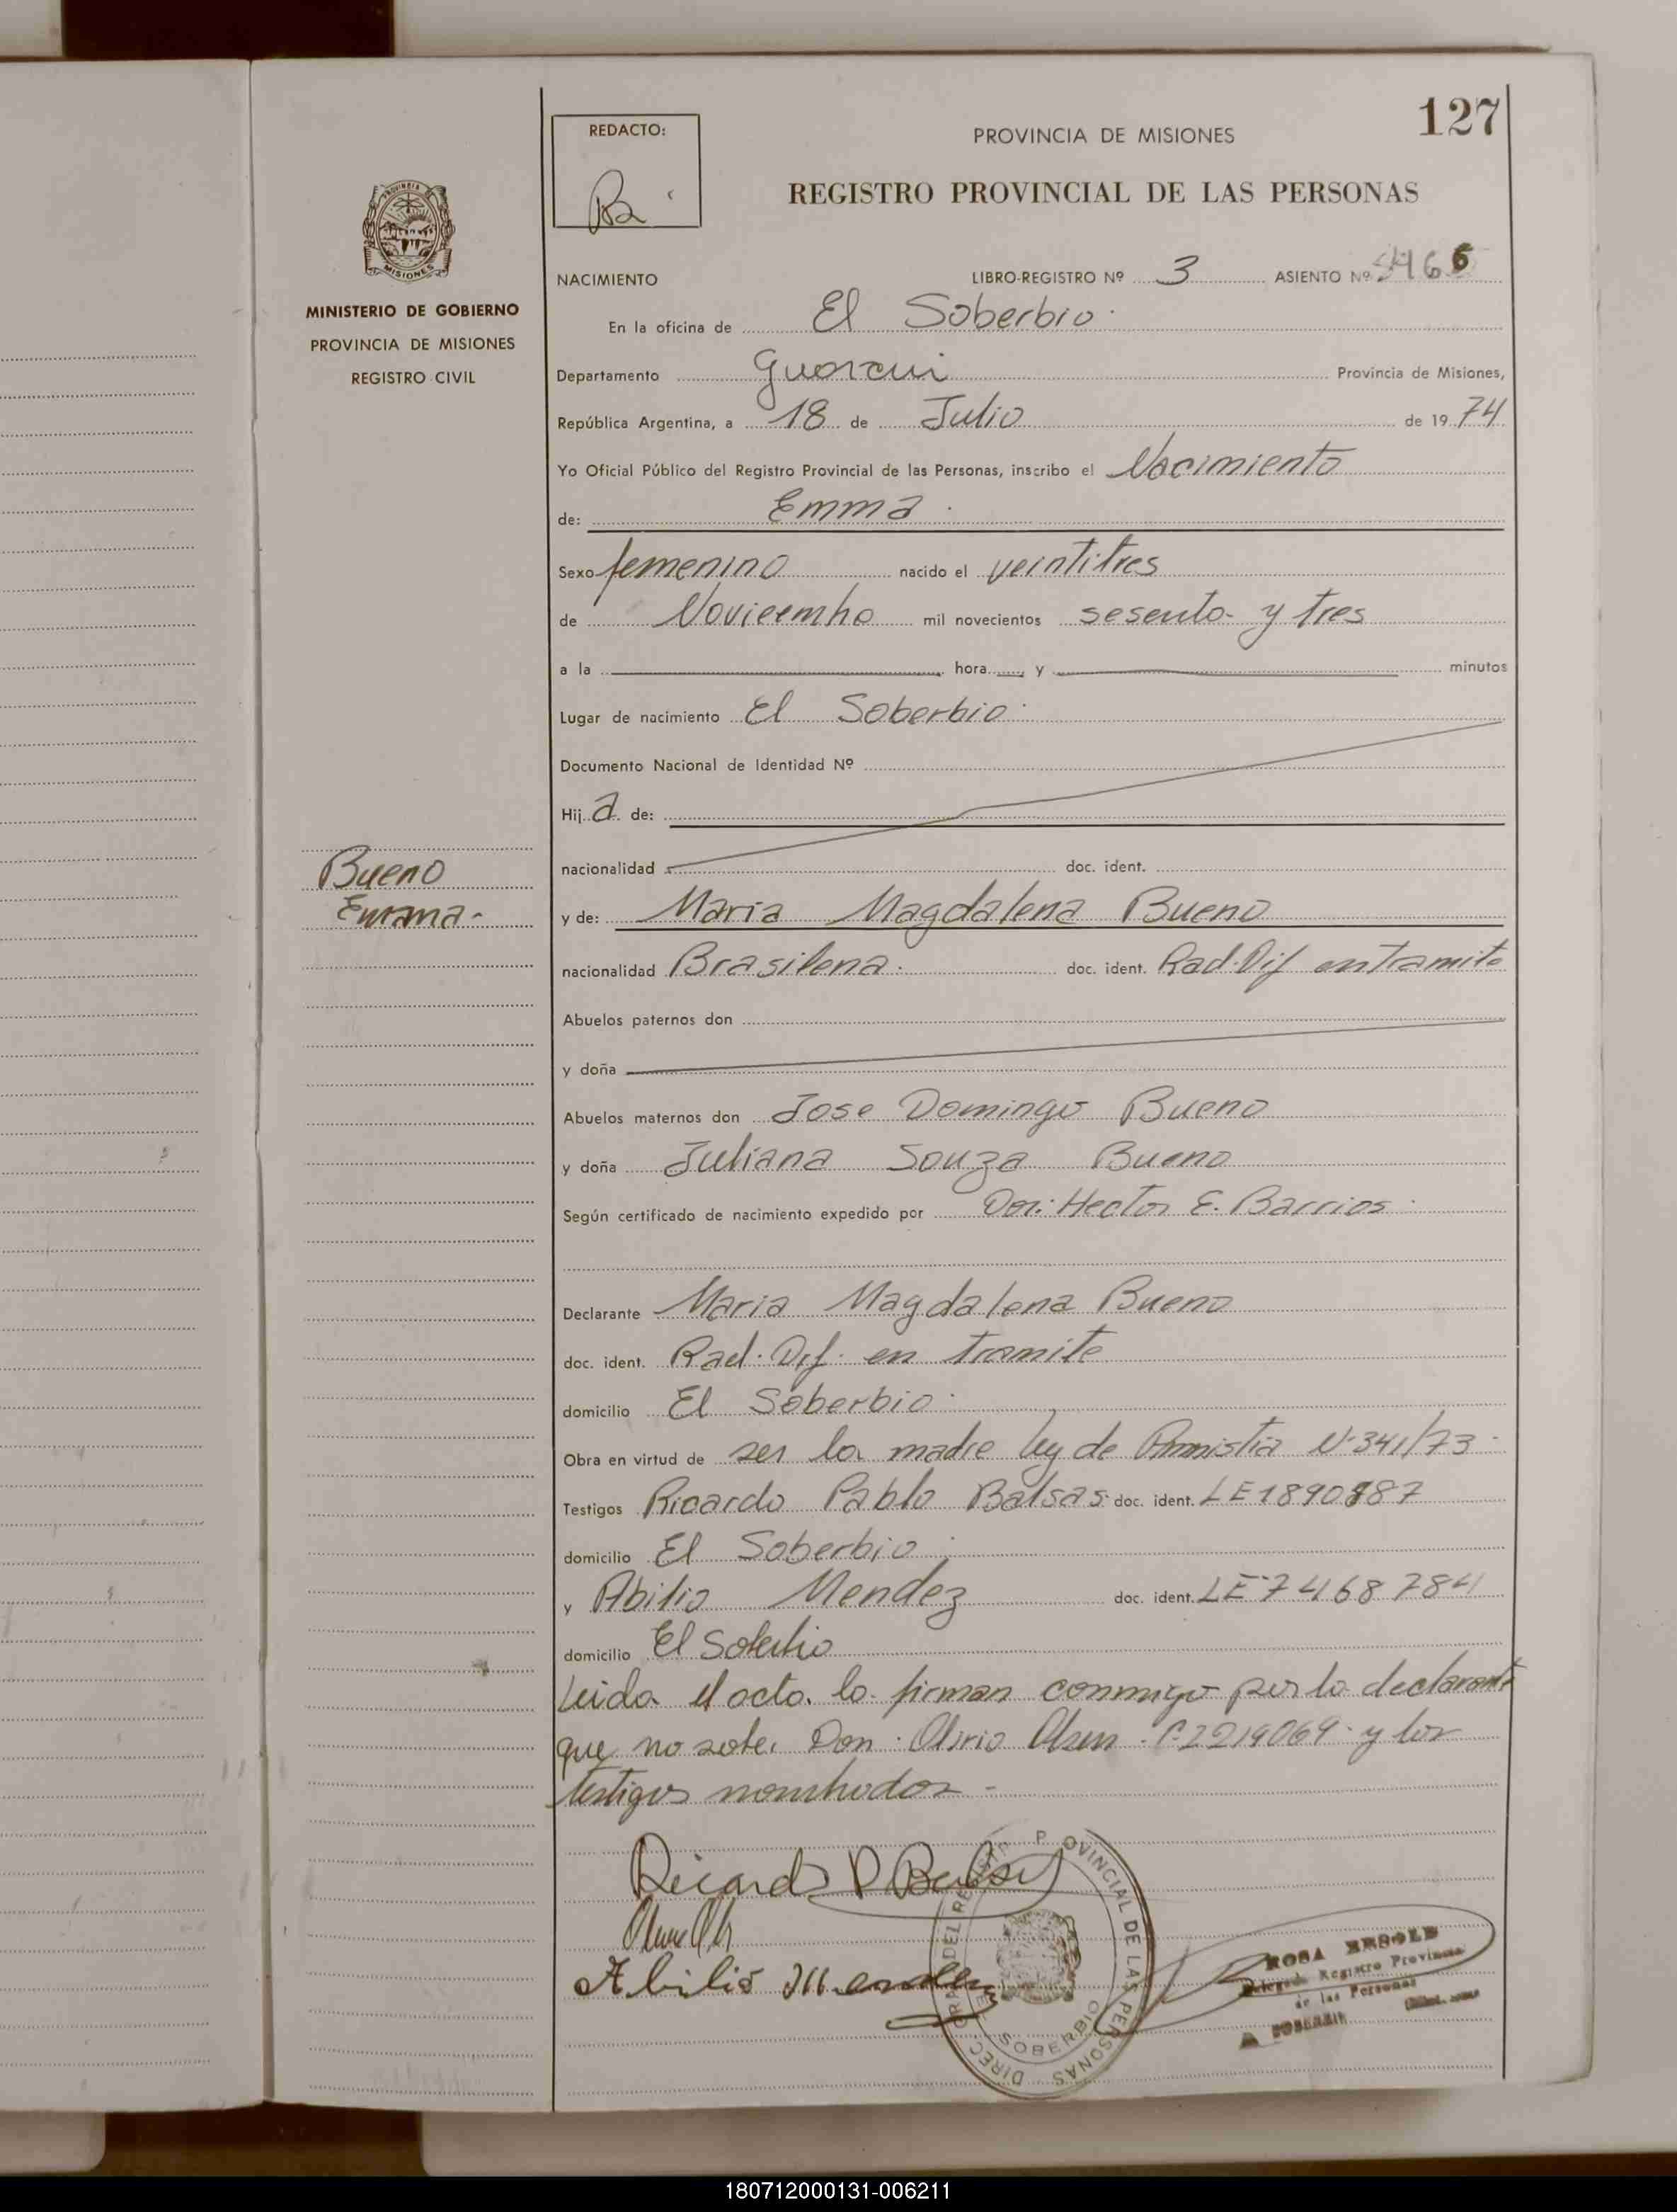 127
REDACTO:
PROVINCIA DE MISIONES
REGISTRO PROVINCIAL DE LAS PERSONAS
MISIONES
MINISTERIO DE GOBIERNO
PROVINCIA DE MISIONES
REGISTRO CIVIL
NACIMIENTO LIBRO-REGISTRO Nº 3 ASIENTO Nº
En la oficina de El Soberbio.
Departamento Guarani Provincia de Misiones,
República Argentina, a 18 de Julio de 1974
Yo Oficial Público del Registro Provincial de las Personas, inscribo el Nacimiento
de: Emma.
Sexo femenino nacido el veintitres
de Novieembo mil novecientos sesenta y tres
a la hora y minutos
Lugar de nacimiento El Soberbio.
Documento Nacional de Identidad Nº
Hij a de:
nacionalidad doc. ident.
Bueno
Emma-
y de: Maria Magdalena Bueno
nacionalidad Brasilena. doc. ident. Rad. Dif en Tramite
Abuelos paternos don
y doña
Abuelos maternos don Jose Domingo Bueno
y doña Juliana Souza Bueno
Según certificado de nacimiento expedido por Dor: Hector E. Barrios.
Declarante Maria Magdalena Bueno
doc. ident. Rad. Dif. en tramite
domicilio El Soberbio.
Obra en virtud de ser la madre ley de Amnistia N·341/73-
Testigos Ricardo Pablo Balsas doc. ident. LE 1890887
domicilio El Soberbio.
y Abilio Mendez doc. ident. LE 7468784
domicilio El Soberbio
Leida el acta la firman conmigo por la declarante
que no sabe, Don C 2219069 y los
testigos nombrados-
Ricardo P Balsas
Abilio Mendez
DIREC. GRAL DEL REGISTRO PROVINCIAL DE LAS PERSONAS
SOBERBIO
ROSA
Delegada Registro Provincial
de las Personas
SOBERBIO
180712000131-006211